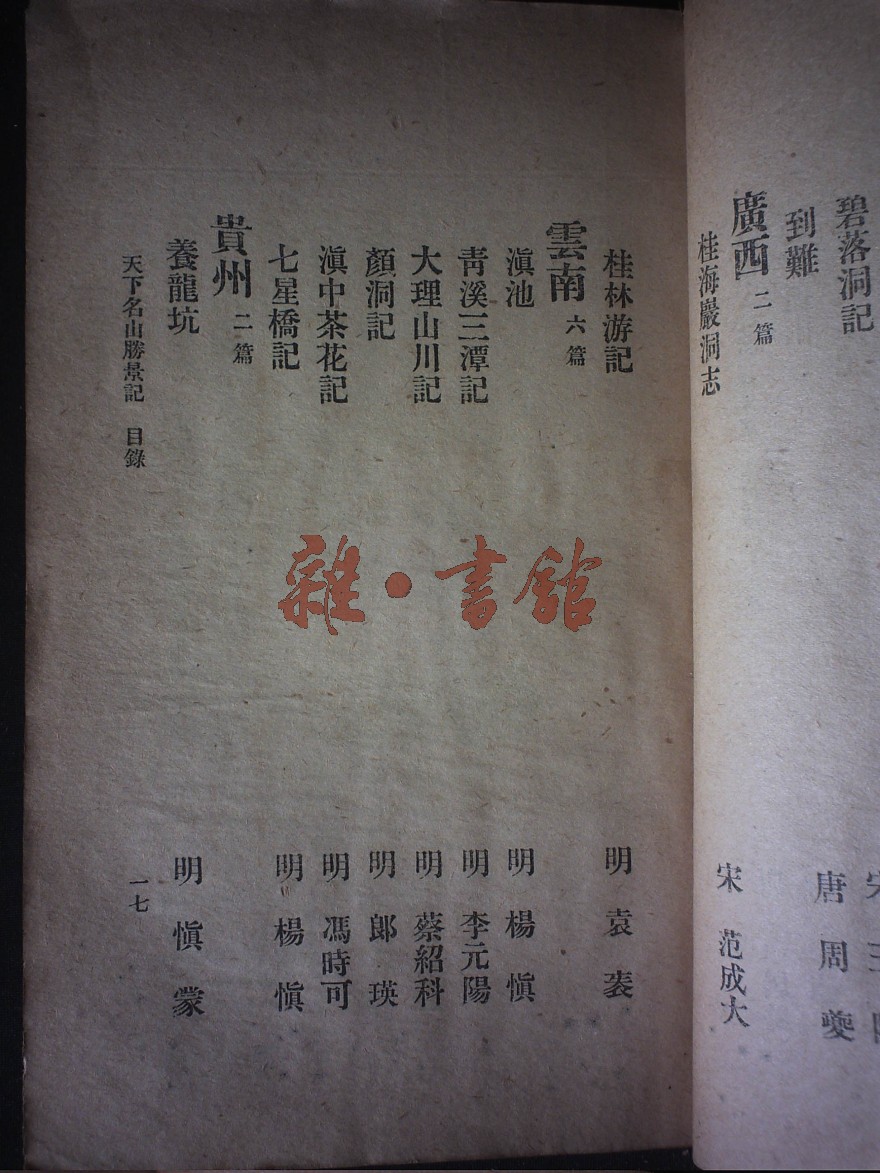 碧落洞記
到難 唐 周夔
廣西 二篇
桂海巖洞志 宋 范成大
桂林游記 明 袁袠
雲南 六篇
滇池 明 楊慎
青溪三潭記 明 李元陽
大理山川記 明 蔡紹科
顏洞記 明 郎瑛
滇中茶花記 明 馮時可
七星橋記 明 楊慎
貴州 二篇
養龍坑 明 慎蒙
天下名山勝景記 目錄 一七
雜·書館